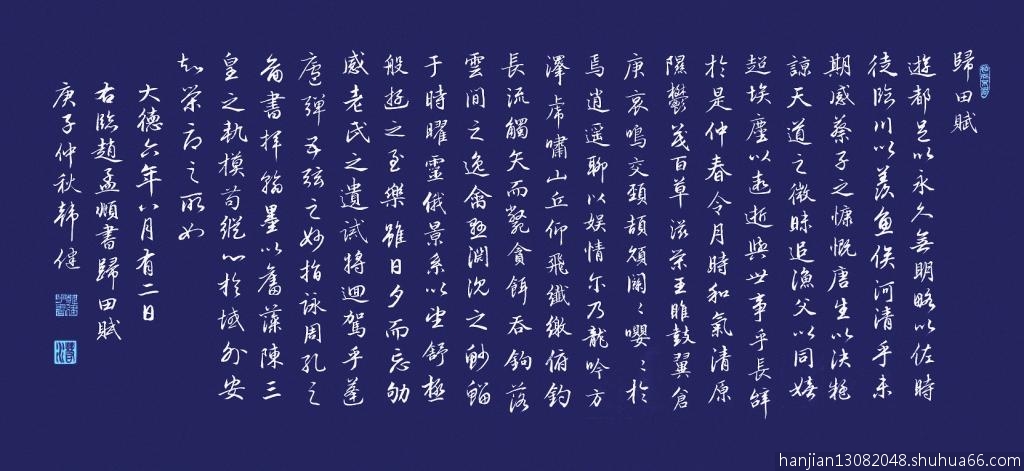 歸田賦
遊都邑以永久無明略以佐時
徒臨川以羨魚俟河清乎未
期感蔡子之慷慨唐生以決
諒天道之微昧追漁父以同嬉
超埃塵以遠逝與世事乎長辭
於是仲春令月時和氣清原
隰鬱茂百草滋榮王雎鼓翼倉
庚哀鳴交頸頡頏關〻嚶〻於
焉逍遙聊以娛情尔乃龍吟方
澤虎嘯山丘仰飛纖繳俯釣
長流觸矢而斃貪餌吞鉤落
雲間之逸禽懸淵沉之魦鰡
于時曜靈俄景系以望舒極
般遊之至樂雖日夕而忘劬
感老氏之遺誡將迴駕乎蓬
廬彈五弦之妙指詠周孔之
圖書揮翰墨以奮藻陳三
皇之軌模苟縱心於域外安
知榮辱之所如
大德六年八月有二日
右臨趙孟頫書歸田賦
庚子仲秋韩健
hanjian13082048.shuhua66.com